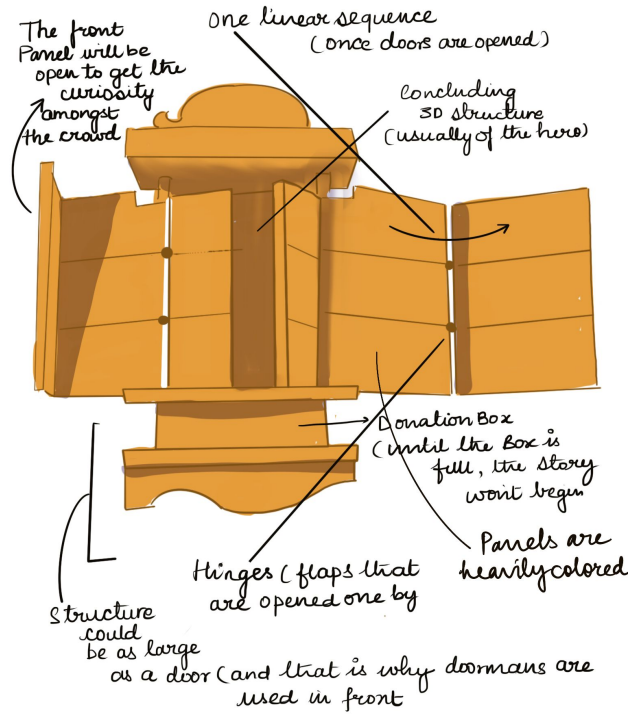 The front
Panel will be
open to get the
curiosity
amongst
the crowd
One linear sequence
(once doors are opened)
Concluding
3D structure
(usually of the hero)
Donation Box
(until the Box is
full, the story
won't begin
Panels are
heavily colored
Hinges (flaps that
are opened one by
Structure
could
be as large
as a door (and that is why doormans are
used in front